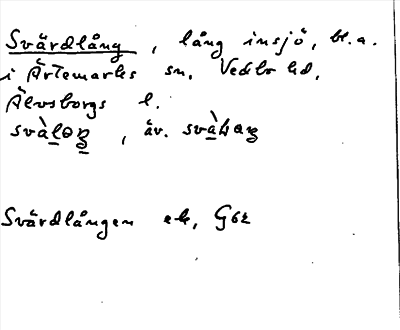 Svärdlång, lång insjö, bl.a.
i Ärtemarks sn, Vedbo hd,
Älvsborgs l.
, äv.
Svärdlången ek, G62